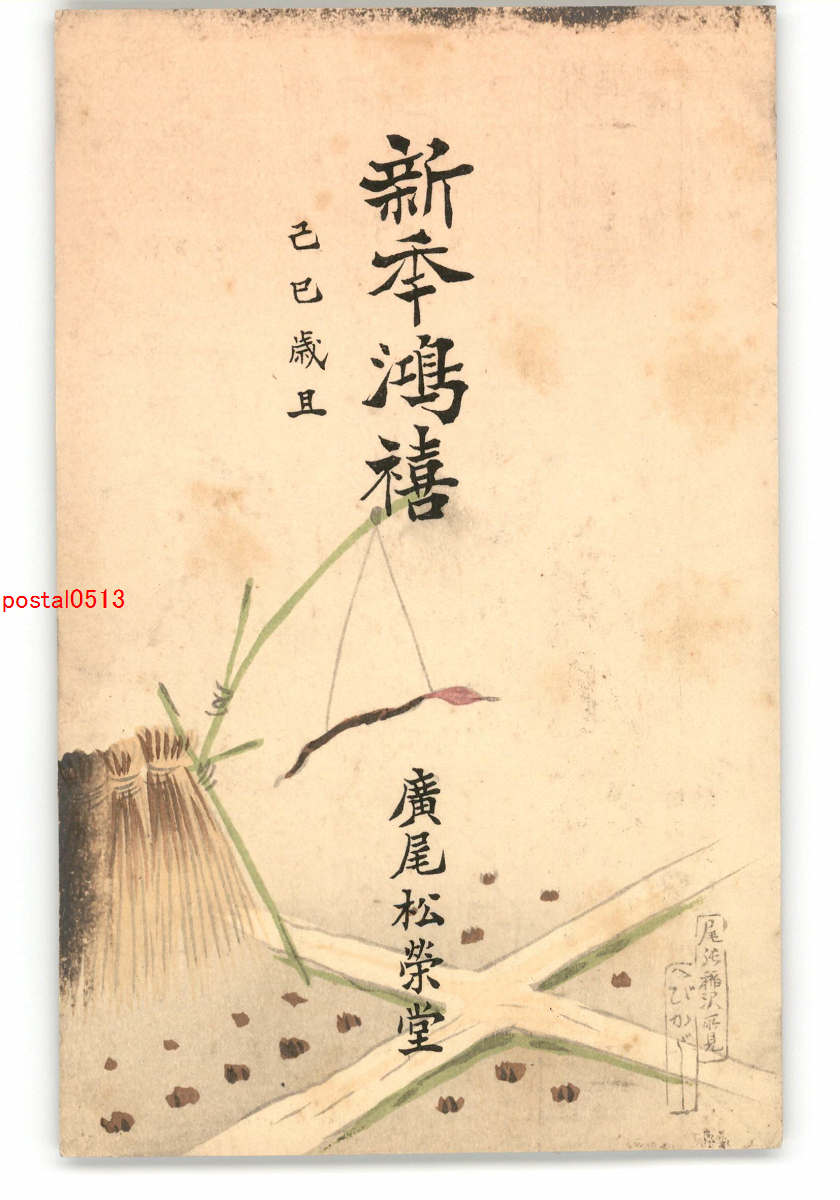 新季鴻禧
己巳歳旦
廣尾松榮堂
尾張稲沢所見
へびかご
postal0513